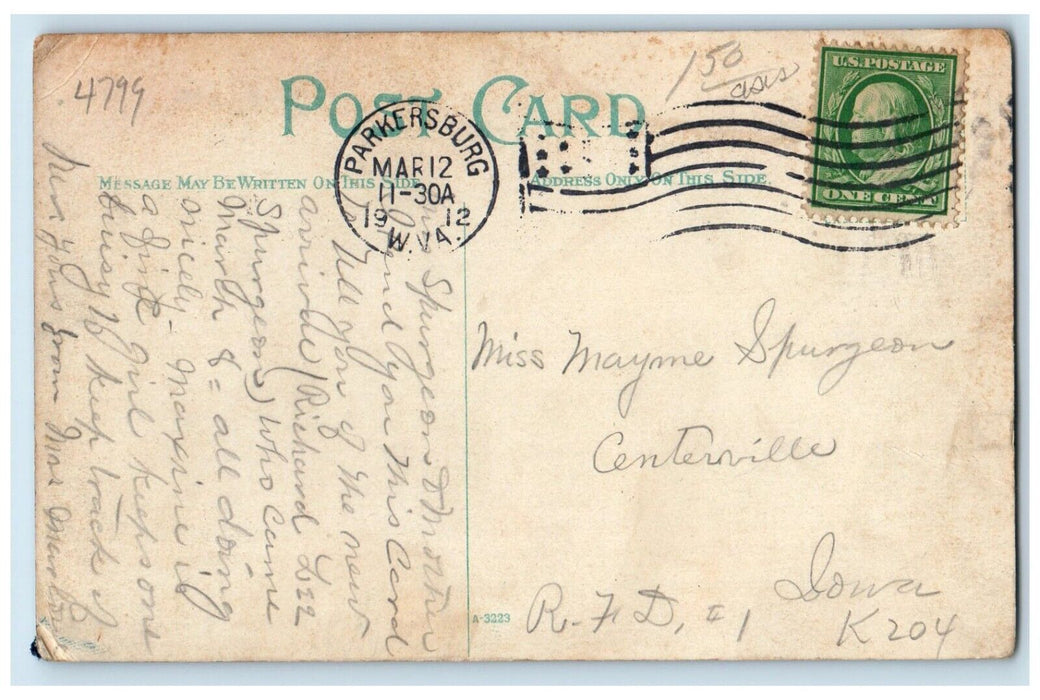 4799
1 50
asis
POST CARD
U.S. POSTAGE
ONE CENT
PARKERSBURG
MAR 12
11-30A
1912
W. VA.
MESSAGE MAY BE WRITTEN ON THIS SIDE
ADDRESS ONLY ON THIS SIDE
Spurgeon & Mother
send you this Card
to Tell you of the new
arrival (Richard
Spurgeon) who came
March 8 = all doing
nicely - Maxine is
a fine girl keeps one
busy to keep track of
her yours from
Miss Mayme Spurgeon
Centerville
Iowa
R.F.D, #1
K204
A-3223